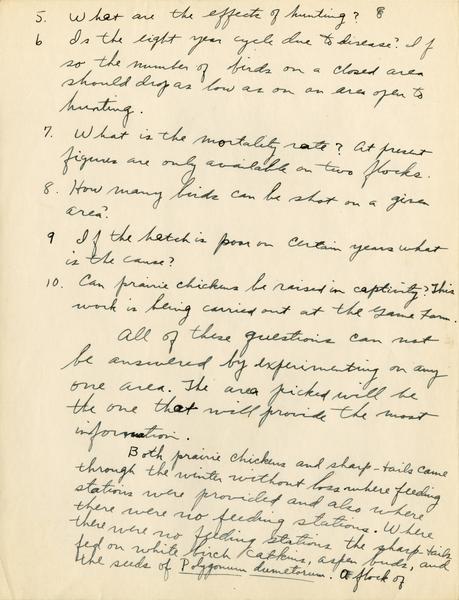 5. What are the effects of hunting? 8
6 Is the eight year cycle due to disease? If
so the number of birds on a closed area
should drop as low as on an area open to
hunting.
7. What is the mortality rate? At present
figures are only available on two flocks.
8. How many birds can be shot on a given
area?
9 If the hatch is poor on certain years what
is the cause?
10. Can prairie chickens be raised in captivity? This
work is being carried out at the Game Farm.
All of these questions can not
be answered by experimenting on any
one area. The area picked will be
the one that will provide the most
information.
Both prairie chickens and sharp-tails came
through the winter without loss where feeding
stations were provided and also where
there were no feeding stations. Where
there were no feeding stations the sharp-tails
fed on white birch catkins, aspen buds, and
the seeds of Polygonum dumetorum. A flock of